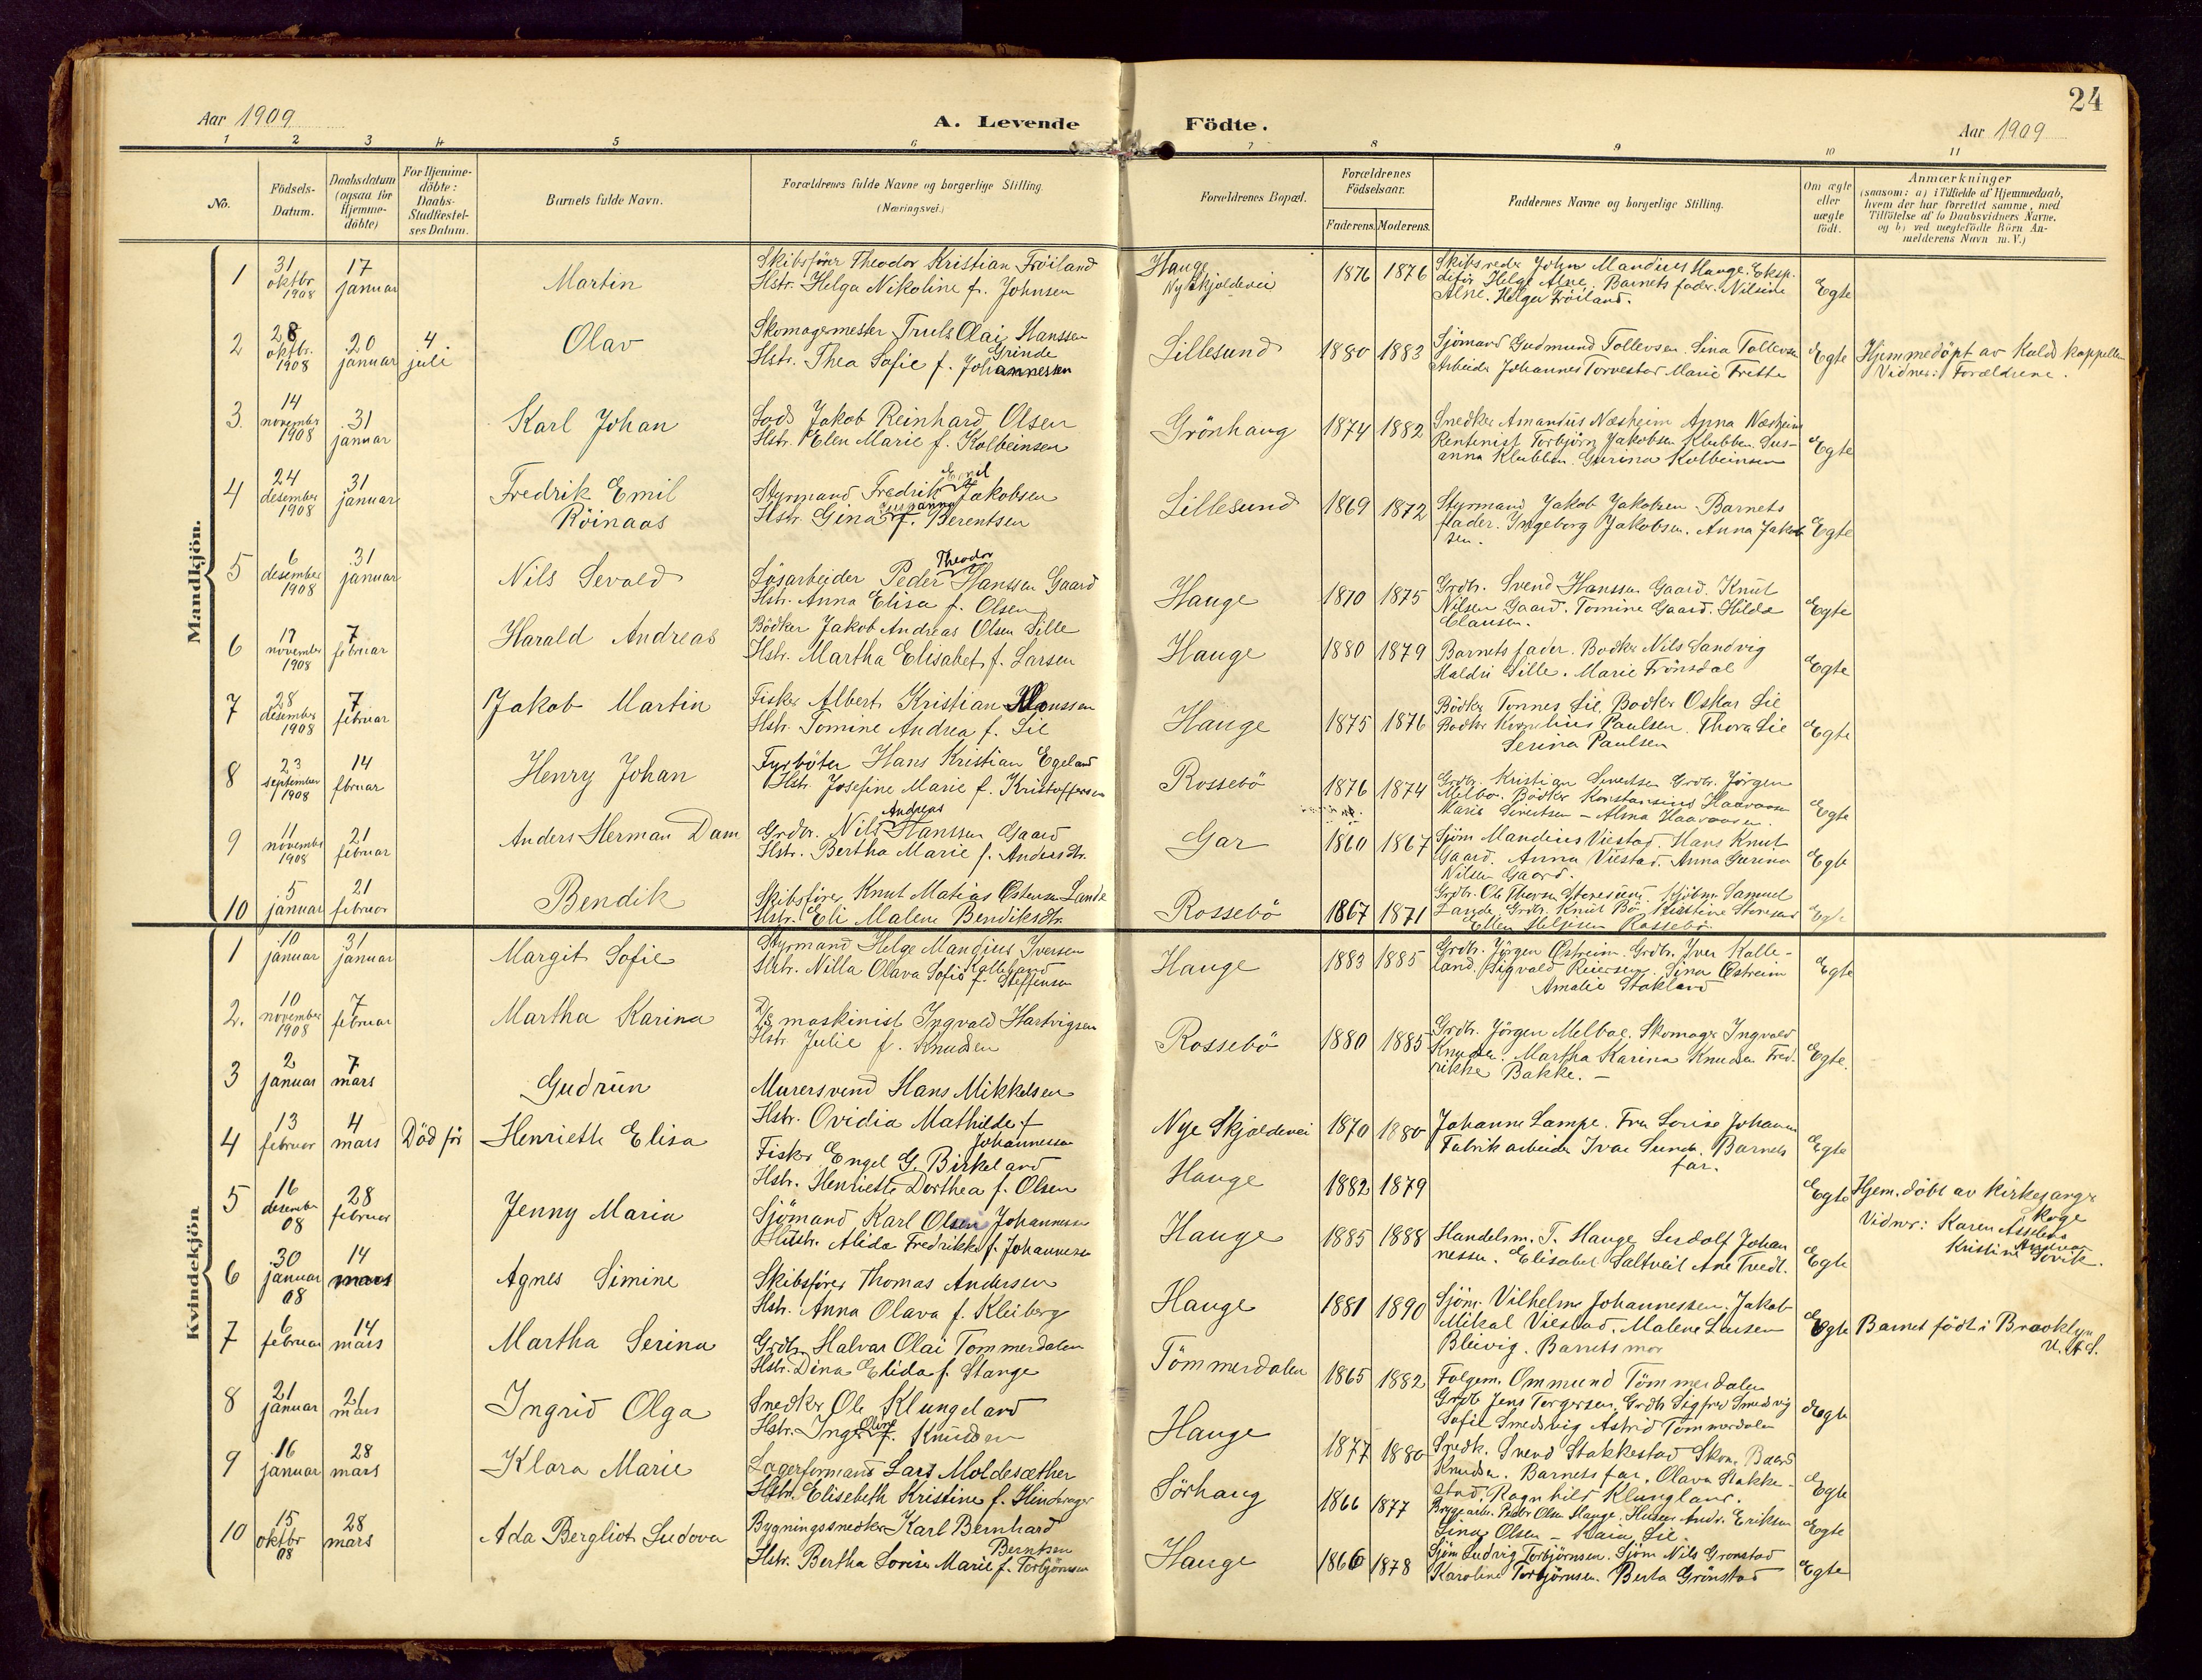 24
Aar 1909
A. Levende Födte.
Aar 1909
1 2 3 4 5 6 7 8 9 10 11
No.
Födsels-
Datum.
Daabsdatum
(ogsaa for
Hjemme-
döbte)
For Hjemme-
döbte:
Daabs-
Stadfæstel-
ses Datum.
Barnets fulde Navn.
Forældrenes fulde Navne og borgerlige Stilling.
(Næringsvei.)
Forældrenes Bopæl.
Forældrenes
Födselsaar.
Faderens. Moderens.
Faddernes Navne og borgerlige Stilling.
Om ægte
eller
uægte
födt.
Anmærkninger
(saasom: a) i Tilfælde af Hjemmedaab,
hvem der har forrettet samme, med
Tilföielse af to Daabsvidners Navne.
og b) ved uægtefödte Börn An-
melderens Navn m. V.)
Mandkjön.
1 31 oktbr 1908 17 januar Martin
Skibsförer Theodor Kristian Fröiland
Hstr. Helga Nikoline f. Johnsen
Hauge
Ny Skjoldevei
1876 1876
Skibsreder John Mandius Hauge. Eksp.
ditör Helge Alne. Barnets fader. Nilsine
Alne. Helga Fröiland.
Egte
2 28 oktbr. 1908 20 januar 4 juli Olav
Skomagermester Truls Olai Hanssen
Grinde
Hstr. Thea Sofie f. Johannessen
Lillesund 1880 1883
Sjömand Gudmund Tollevsen. Sina Tollevsen
Arbeider Johannes Torvestad Marie Frette
Egte
Hjemmedöpt av Kald kappellan
Vidner: Forældrene.
3. 14 november 1908 31 januar Karl Johan
Lods Jakob Reinhard Olsen
Hstr. Elen Marie f. Kolbeinsen
Grönhaug 1874 1882
Snedker Amandus Næsheim Anna Næsheim
Rentenist Torbjörn Jakobsen Klubben Sus-
anna Klubben. Gurina Kolbeinsen
Egte
4 24 desember 1908 31 januar Fredrik Emil
Röinaas
Styrmand Fredrik Emil Jakobsen
Hstr. Gina Susanna f. Berentsen
Lillesund 1869 1872
Styrmand Jakob Jakobsen. Barnets
fader. Ingeborg Jakobsen. Anna Jakob
sen.
Egte
5 6 desember 1908 31 januar Nils Sevald
Theodor
Lösarbeider Peder Hanssen Gaard
Hstr. Anna Elisa f. Olsen
Hauge 1870 1875
Grdbr. Svend Hanssen Gaard. Knut
Nilsen Gaard. Tomine Gaard. Hilda
Clausen.
Egte
6 17 november 1908 7 februar Harald Andreas
Bödker Jakob Andreas Olsen Lille
Hstr. Martha Elisabet f. Larsen
Hauge 1880 1879
Barnets fader. Bödker Nils Sandvig
Haldri Lille. Marie Frönsdal
Egte
7 28 desember 1908 7 februar Jakob Martin
Fisker Albert Kristian Monssen
Hstr. Tomine Andrea f. Lie
Hauge 1875 1876
Bödker Tönnes Lie. Bödker Oskar Lie
Bödker Kornelius Paulsen. Thora Lie
Serina Paulsen
Egte
8 23 september 1908 14 fbruar Henry Johan
Fyrböter Hans Kristian Egeland
Hstr. Josefine Marie f. Kristoffersen
Rossebö 1876 1874
Grdbr. Kristian Sivertsen Grdbr. Jörgen
Melbo. Bödker Konstansius Haavaasen
Marie Sivertsen – Alma Haavaasen.
Egte
9 11 november 1908 21 februar Anders Herman Dam
Andreas
Grdbr. Nils Hanssen Gaard
Hstr. Bertha Marie f. Andersdtr.
Gar 1860 1867
Sjöm Mandius Viestad. Hans Knut
Gaard. Anna Viestad. Anna Gurina
Nilsen Gaard.
Egte
10 5 januar 21 februar Bendik
Skibsförer Knut Matias Östensen Lande
Hstr. Eli Malene Bendiksdtr.
Rossebö 1867 1871
Grdbr. Ole Thorsen Storesund. Kjöbm. Samuel
Lande Grdbr. Knut Bö Kristine Storesund
Ellen Helgesen Rossebö.
Egte
Kvindekjön
1 10 januar 31 januar Margit Sofie
Styrmand Helge Mandius Iversen
Kalleland
Hstr. Nilla Olava Sofie f. Steffensen
Hauge 1883 1885
Grdbr. Jörgen Östreim. Grdbr. Iver Kalle-
land. Sigvald Reiersen. Sina Östreim
Amalie Stakland
Egte
2. 10 november 1908 7 februar Martha Karina
D/S maskinist Ingvald Hartvigsen
Hstr Julie f. Knudsen
Rossebö 1880 1885
Grdbr. Jörgen Melboe. Skomager Ingvald
Knudsen. Martha Karina Knudsen Fred-
rikke Bakke. –
Egte.
3 2 januar 7 mars Gudrun
Murersvend Hans Mikkelsen
Hstr. Ovidia Mathilde f.
Johannessen
Nye Skjoldevei 1870 1880
Johanne Lampe. Fru Lovise Johannes
Fabrikarbeider Ivar Sunde. Barnets
far.
Egte
4 13 februar 4 mars Död för Henriette Elisa
Fisker Engel G. Birkeland
Hstr. Henriette Dorthea f. Olsen
Hauge 1882 1879
Egte
Hjem.döbt av kirkesanger
Koge
Vidner: Karen Asseløs
Kristine Sövik.
5 16 desember 08 28 februar Jenny Maria
Sjömand Karl Olsen Johannessen
Hustr. Alida Fredrikke f. Johannesen
Hauge 1885 1888
Handelsm. T. Hauge Ludolf Johan
nessen. Elisabet Saltveit Ane Tvedt.
Egte
6 30 januar 08 14 mars Agnes Simine
Skibsförer Thomas Andersen
Hstr. Anna Olava f. Kleiberg
Hauge 1881 1890
Sjöm. Vilhelm Johannessen. Jakob
Mikal Viestad. Malene Larsen
Bleivig. Barnets mor
Egte
Barnet födt i Brooklyn
U.S.
7 6 februar 14 mars Martha Serina
Grdbr. Halvar Olai Tommerdalen
Hstr. Dina Elida f. Stange
Tömmerdalen 1865 1882
Folgem. Ommund Tömmerdalen
Grdb Jens Torgersen. Grdb Sigfred Smedsvig
Sofie Smedsvig Astrid Tömmerdalen
Egte
8 21 januar 21 mars Ingrid Olga
Snedker Ole Klungeland
Hstr. Inger Oline f. Knudsen
Hauge 1877 1880
Snedk. Svend Stakkestad Skom. Baard
Knudsen. Barnets far. Olava Stakke-
stad. Ragnhild Klungland.
Egte
9 16 januar 28 mars Klara Marie
Lagerformand Lars Moldesæther
Hstr. Elisebeth Kristine f. Hinderager
Sörhaug 1866 1877
Bryggearb. Peder Olsen Hauge. Huseier Andr. Eriksen
Sina Olsen – Maia Lie.
Egte
10 15 oktbr 08 28 mars Ada Bergliot Ludova
Bygningssnedker Karl Bernhard
Berntsen
Hstr. Bertha Lovise Marie f. Torbjörnsen
Hauge 1866 1878
Sjöm Ludvig Torbjörnsen. Sjöm Nils Grönstad
Karoline Torbjörnsen. Berta Grönstad
Egte